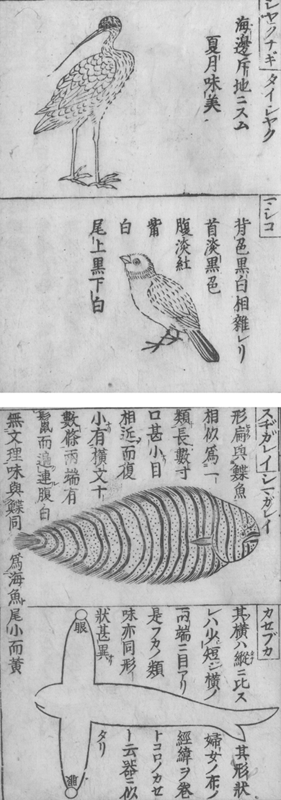 シヤクナギ タイシヤク
海邊斥地ニスム
夏月味美
マシコ
背色黒白相雜レリ
首淡黒色
腹淡紅
觜
白
尾上黒下白
スヂガレイ シマガレイ
形扁與鰈魚
相似爲一
類長數寸
口甚小目
相近而復
小有横文十
數條兩端有
鬣而追連腹白
無文理味與鰈同
爲海魚尾小而黄
カセブカ
其横ハ縱ニ比ス
レハ少短シ横ノ
兩端ニ目アリ
是フカノ類
味亦同形
狀甚異
其形狀
婦女ノ布ノ
經緯ヲ巻
トコロノカセ
ト云器ニ似
タリ
眼